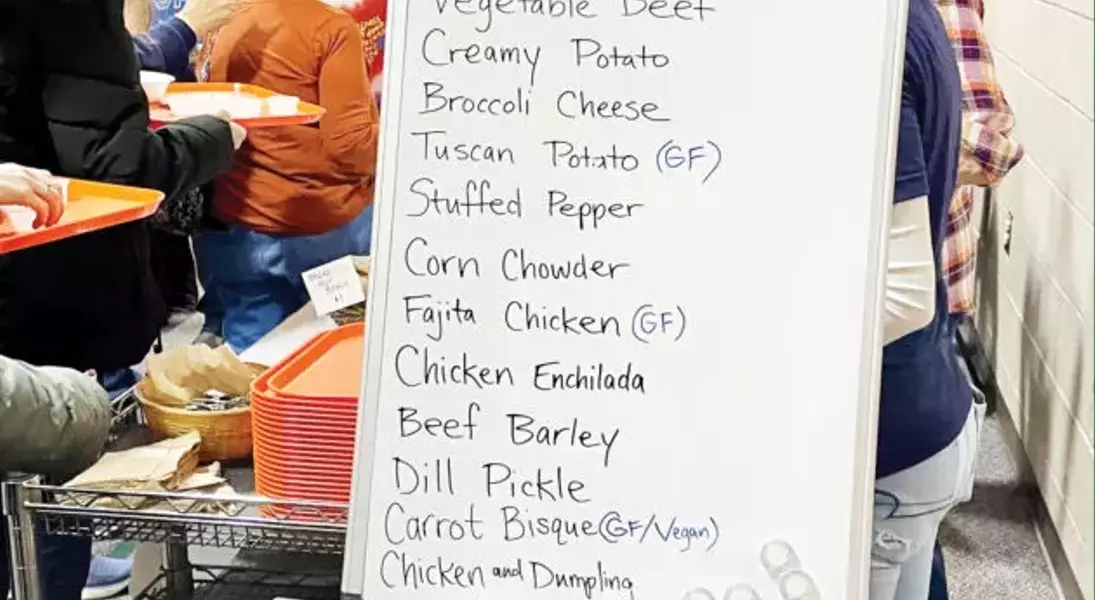 Vegetable Beef
Creamy Potato
Broccoli Cheese
Tuscan Potato (GF)
Stuffed Pepper
Corn Chowder
Fajita Chicken (GF)
Chicken Enchilada
Beef Barley
Dill Pickle
Carrot Bisque (GF/Vegan)
Chicken and Dumpling